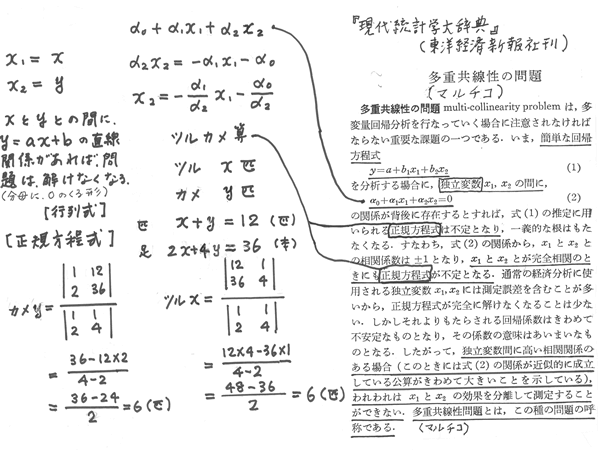 x₁ = x
x₂ = y
xとyとの間に、
y=ax+bの直線
関係があれば、問
題は、解けなくなる。
(分母に、0のくる形)
[行列式]
[正規方程式]
カメy = |1 12; 2 36| / |1 1; 2 4|
= (36-12×2)/(4-2)
= (36-24)/2 = 6(匹)
α₀+α₁x₁+α₂x₂
α₂x₂ = -α₁x₁-α₀
x₂ = -(α₁/α₂)x₁ - (α₀/α₂)
ツルカメ算
ツル x匹
カメ y匹
匹 x+y=12(匹)
足 2x+4y=36(本)
ツルx = |12 1; 36 4| / |1 1; 2 4|
= (12×4-36×1)/(4-2)
= (48-36)/2 = 6(匹)
『現代統計学大辞典』
(東洋経済新報社刊)
多重共線性の問題
(マルチコ)
多重共線性の問題 multi-collinearity problem は,多
変量回帰分析を行なっていく場合に注意されなければ
ならない重要な課題の一つである.いま,簡単な回帰
方程式
y=a+b₁x₁+b₂x₂ (1)
を分析する場合に,独立変数 x₁, x₂ の間に,
α₀+α₁x₁+α₂x₂=0 (2)
の関係が背後に存在するとすれば,式(1)の推定に用
いられる正規方程式は不定となり,一義的な根はもた
なくなる.すなわち,式(2)の関係から,x₁ と x₂ と
の相関係数は ±1 となり,x₁ と x₂ とが完全相関のと
きにも正規方程式が不定となる.通常の経済分析に使
用される独立変数 x₁, x₂ には測定誤差を含むことが多
いから,正規方程式が完全に解けなくなることは少な
い.しかしそれよりもたらされる回帰係数はきわめて
不安定なものとなり,その係数の意味はあいまいなも
のとなる.したがって,独立変数間に高い相関関係の
ある場合(このときには式(2)の関係が近似的に成立
している公算がきわめて大きいことを示している),
われわれは x₁ と x₂ の効果を分離して測定すること
ができない.多重共線性問題とは,この種の問題の呼
称である.
(マルチコ)